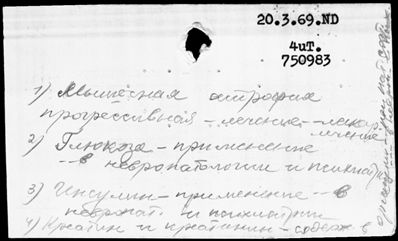 20.3.69.ND
4UT.
750983
1) Мышечная атрофия
прогрессивная - лечение - лекар.
лечение
2) Глюкоза - применение
-- в невропатологии и психиат
3) Инсулин - применение -- в
невропат. и психиатрии
4) Креатин и креатинин - содерж в